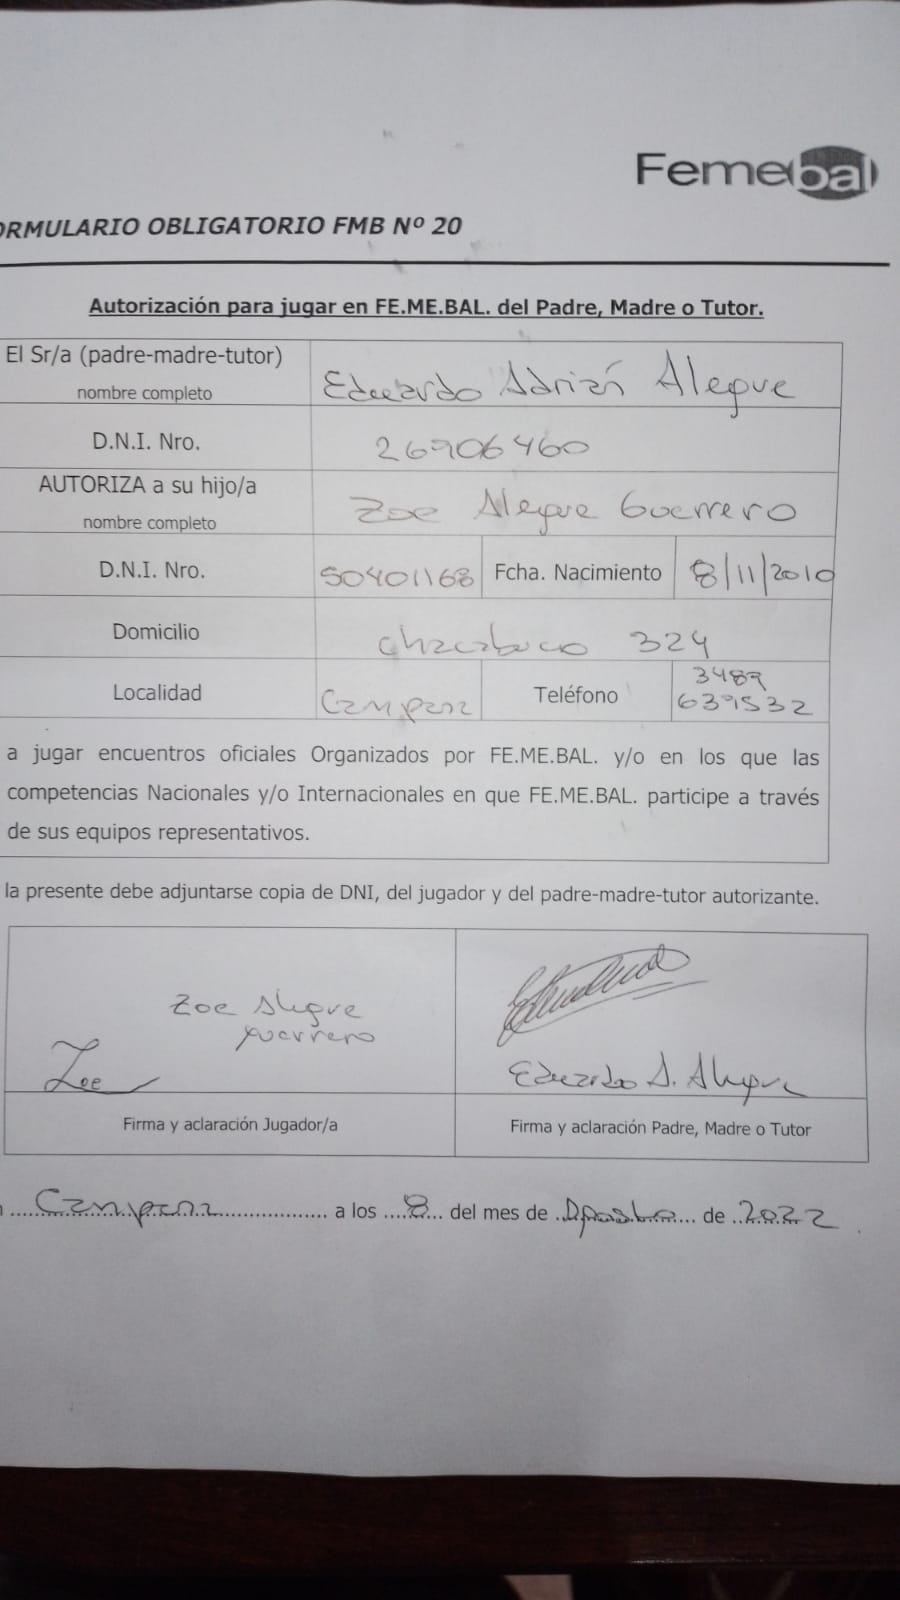 Femebal
ORMULARIO OBLIGATORIO FMB Nº 20
Autorización para jugar en FE.ME.BAL. del Padre, Madre o Tutor.
El Sr/a (padre-madre-tutor)
nombre completo
Eduardo Adrián Alegre
D.N.I. Nro.
26906460
AUTORIZA a su hijo/a
nombre completo
Zoe Alegre Guerrero
D.N.I. Nro. 50401168 Fcha. Nacimiento 8/11/2010
Domicilio Chacabuco 324
Localidad Campana Teléfono 3489
639532
a jugar encuentros oficiales Organizados por FE.ME.BAL. y/o en los que las
competencias Nacionales y/o Internacionales en que FE.ME.BAL. participe a través
de sus equipos representativos.
la presente debe adjuntarse copia de DNI, del jugador y del padre-madre-tutor autorizante.
Zoe Alegre
Guerrero
Zoe
Eduardo A. Alegre
Firma y aclaración Jugador/a
Firma y aclaración Padre, Madre o Tutor
Campana a los 8 del mes de Agosto de 2022